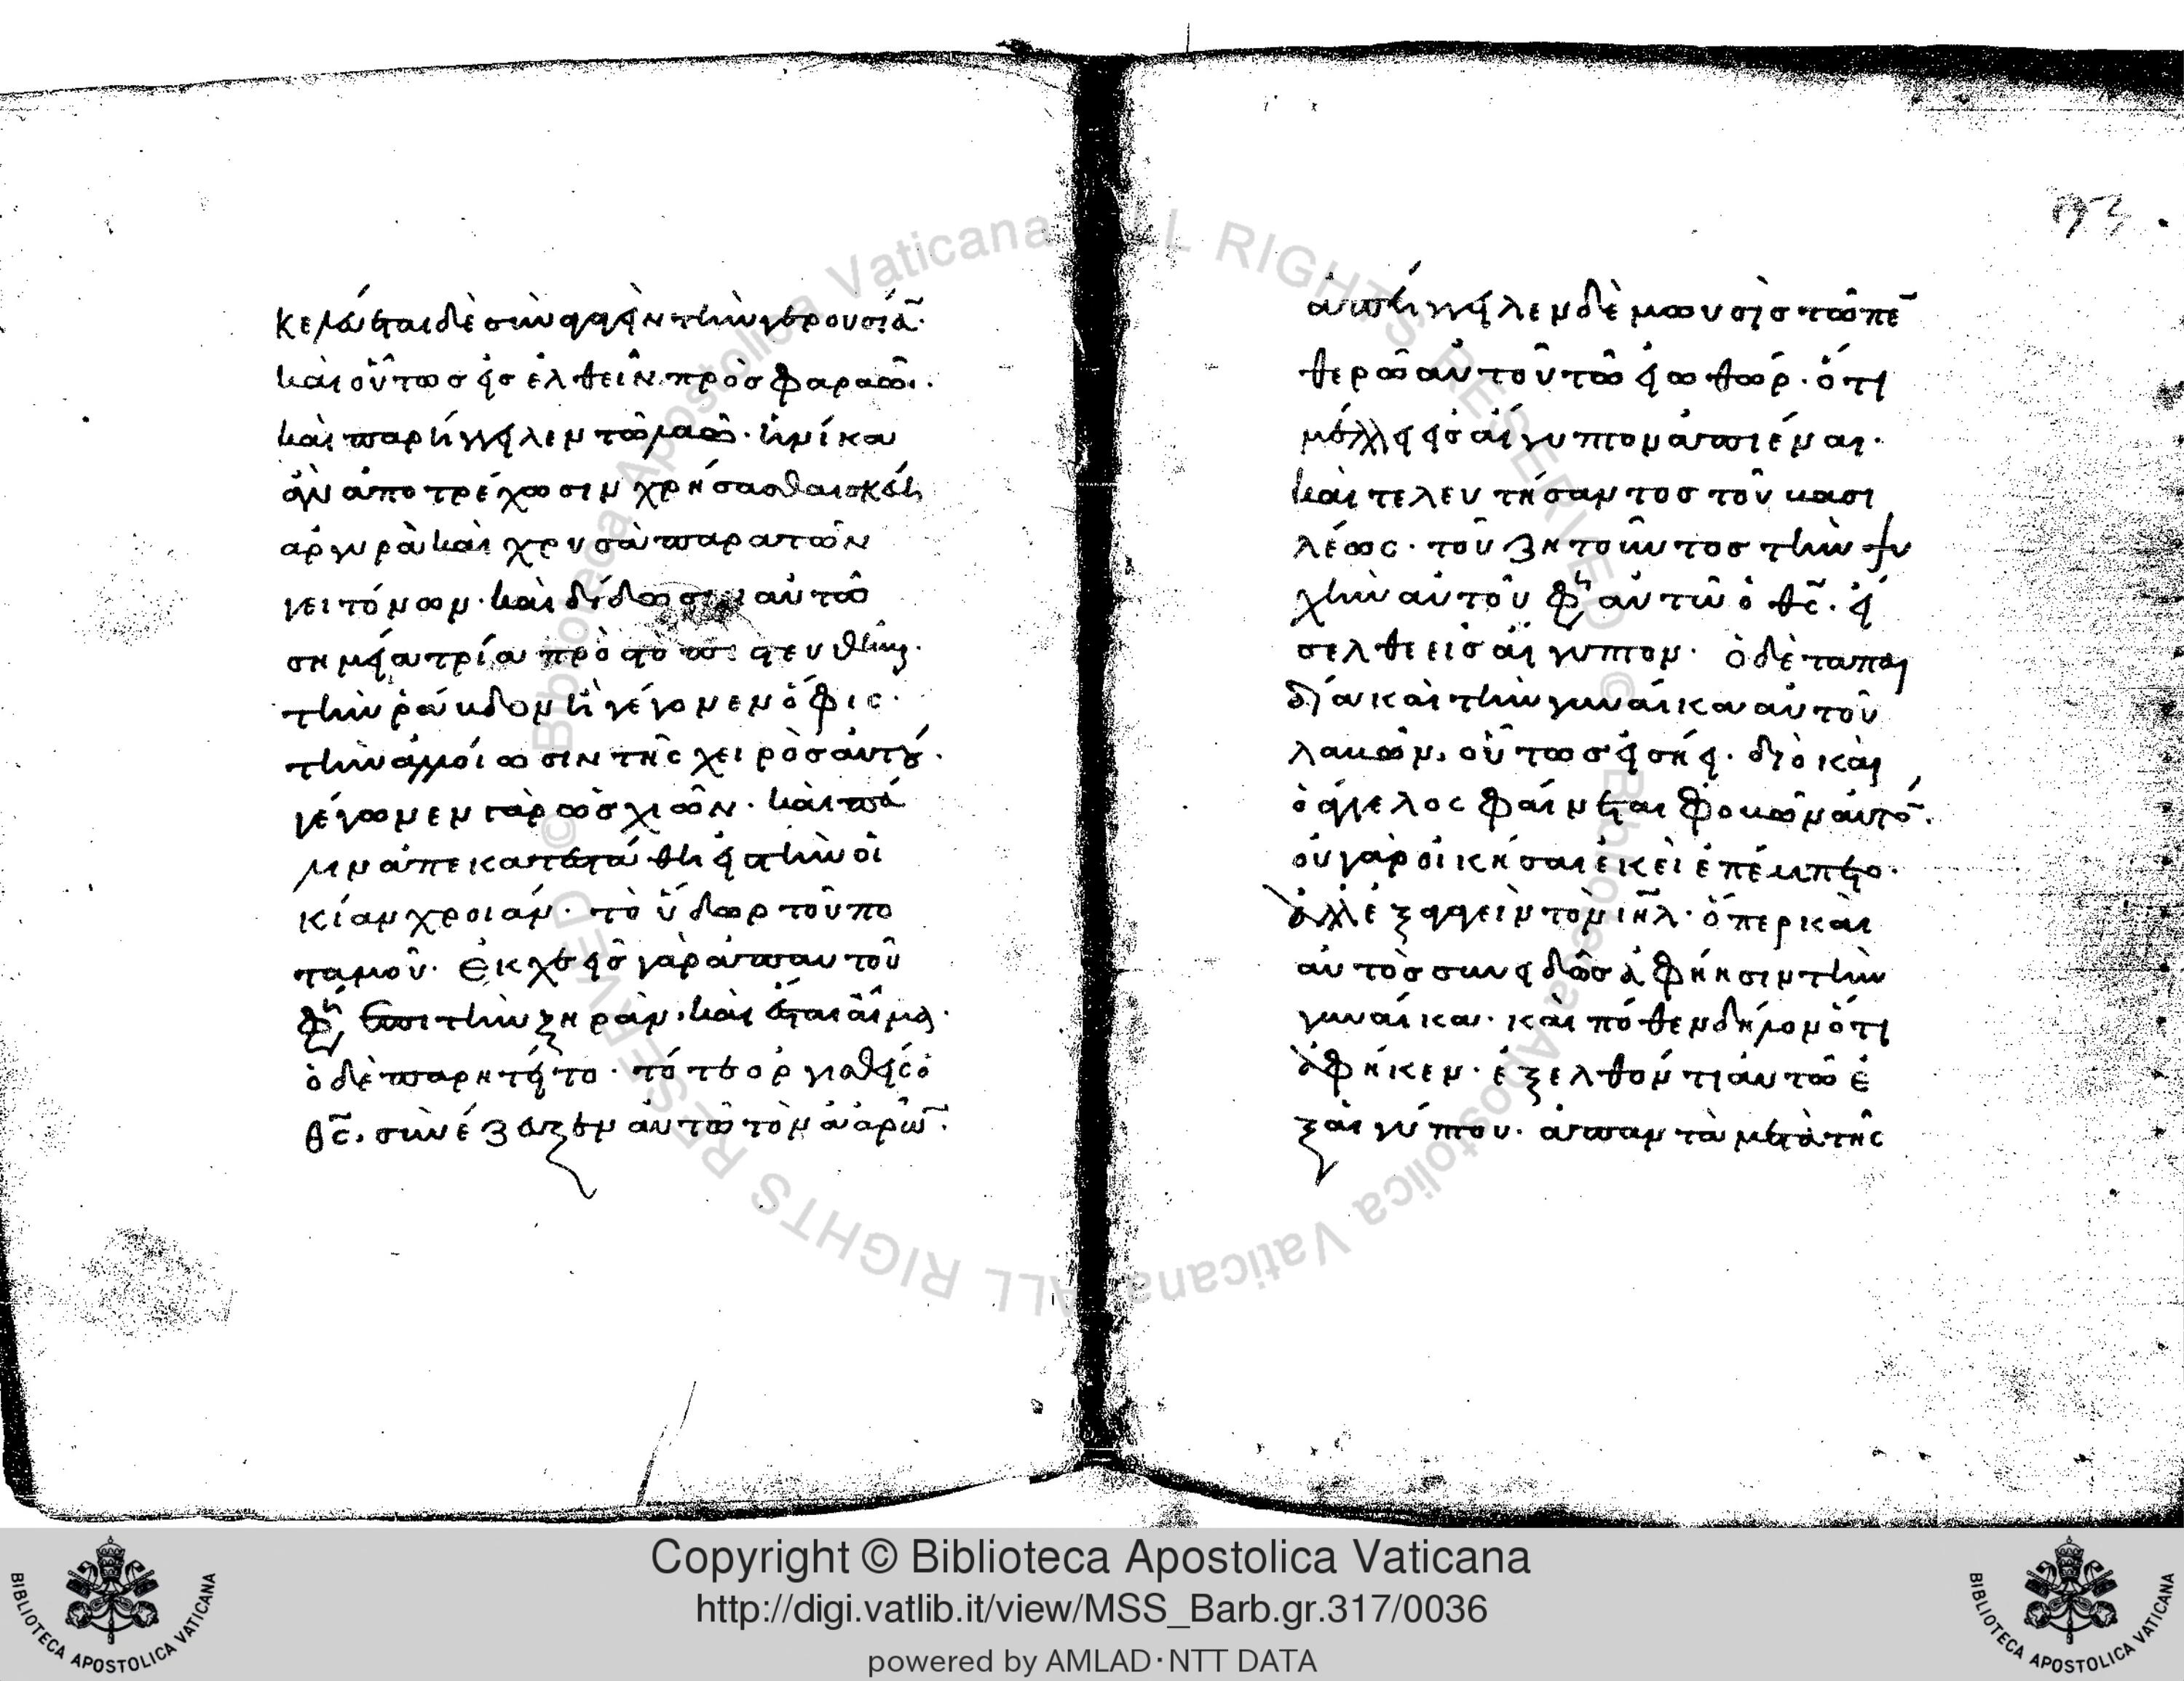 κελεύεται δὲ συναγαγεῖν τὴν γερουσίαν.
καὶ οὕτως εἰσελθεῖν πρὸς φαραώ.
καὶ παρήγγειλεν τῶ λαῶ. ἡνίκα
ἂν ἀποτρέχωσιν χρήσασθαι σκεύη
ἀργυρᾶ καὶ χρυσᾶ παρὰ τῶν
γειτόνων. καὶ δίδωσιν αὐτῶ
σημεῖα τρία πρὸς τὸ πιστευθῆναι.
τὴν ῥάβδον ἣ γέγονεν ὄφις.
τὴν ἀλλοίωσιν τῆς χειρὸς αὐτοῦ.
γέγονεν γὰρ ὡς χιών. καὶ πά
λιν ἀπεκατεστάθη εἰς τὴν οἰ
κίαν χροιάν. τὸ ὕδωρ τοῦ πο
ταμοῦ. ἐκχεεῖς γὰρ ἀπ αὐτοῦ
φη ἐπὶ τὴν ξηράν. καὶ ἔσται αἷμα.
ὁ δὲ παρητεῖτο. τότε ὀργισθεὶς ὁ
θς. συνέζευξεν αὐτῶ τὸν ἀαρών.
ἀπήγγειλεν δὲ μωυσῆς τῶ πεν
θερῶ αὐτοῦ τῶ ἰωθώρ. ὅτι
μέλλει εἰς αἴγυπτον ἀπιέναι.
καὶ τελευτήσαντος τοῦ βασι
λέως. τοῦ ζητοῦντος τὴν ψυ
χὴν αὐτοῦ φη αὐτῶ ὁ θς. εἴ
σελθε εἰς αἴγυπτον. ὁ δὲ τὰ παι
δία καὶ τὴν γυναῖκα αὐτοῦ
λαβών. οὕτως εἰσήει. διὸ καὶ
ὁ ἄγγελος φαίνεται φοβῶν αὐτόν.
οὐ γὰρ οἰκῆσαι ἐκεῖ ἐπέμπετο.
ἀλλ ἐξαγαγεῖν τὸν ιηλ. ὅπερ καὶ
αὐτὸς συνειδὼς ἀφίησιν τὴν
γυναῖκα. καὶ πόθεν δῆλον ὅτι
ἀφῆκεν. ἐξελθόντι αὐτῶ ἐ
ξ αἰγύπτου. ἀπαντᾶ μετὰ τῆς